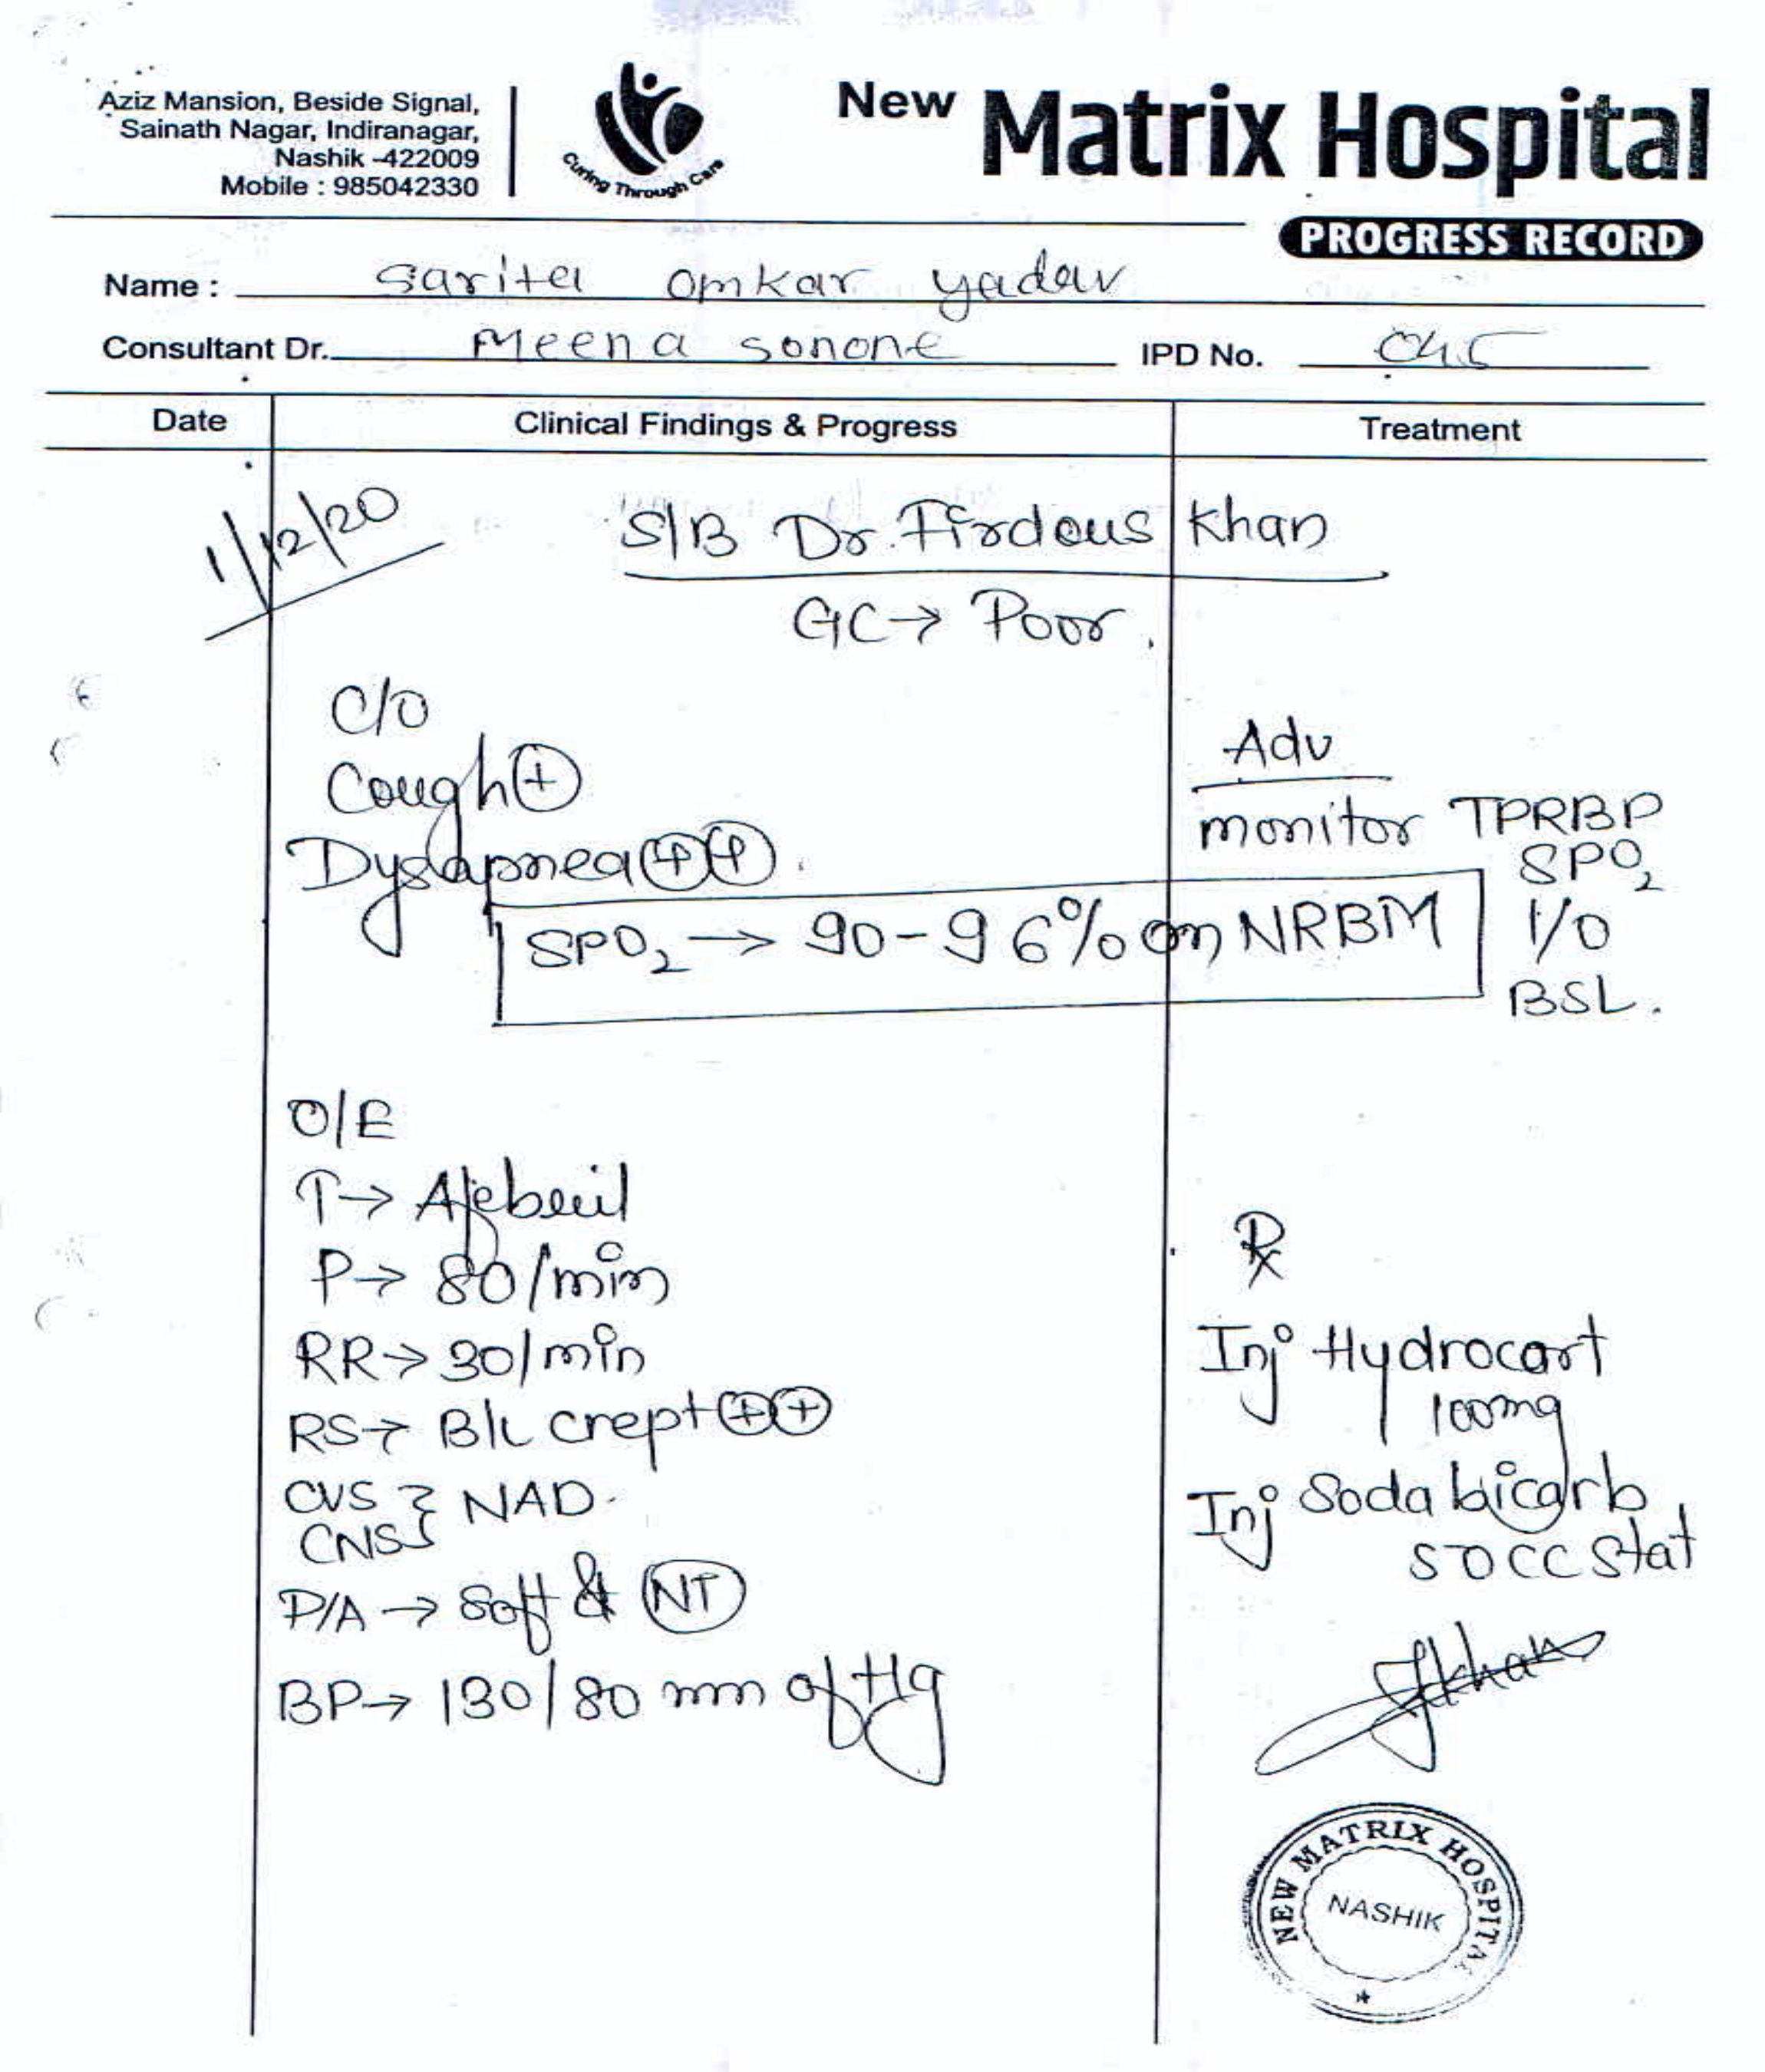 Aziz Mansion, Beside Signal,
Sainath Nagar, Indiranagar,
Nashik -422009
Mobile : 985042330
Curing Through Care
New Matrix Hospital
PROGRESS RECORD
Name : Sarita Omkar yadav
Consultant Dr. Meena Sonone IPD No. 045
Date Clinical Findings & Progress Treatment
1/12/20 S/B Dr. Firdous Khan
GC→ Poor.
C/O
Cough⊕
Dysapnea⊕⊕.
SPO₂ → 90-96% on NRBM
Adv
monitor TPRBP
SPO₂
I/O
BSL.
O/E
T→ Afebril
P→ 80/min
RR→ 30/min
RS→ B/L crept⊕⊕
CVS } NAD.
CNS
P/A → Soft & NT
BP→ 130/80 mm of Hg
Rx
Inj Hydrocort
100mg
Inj Soda bicarb
50CC Stat
Fkhan
NEW MATRIX HOSPITAL
NASHIK